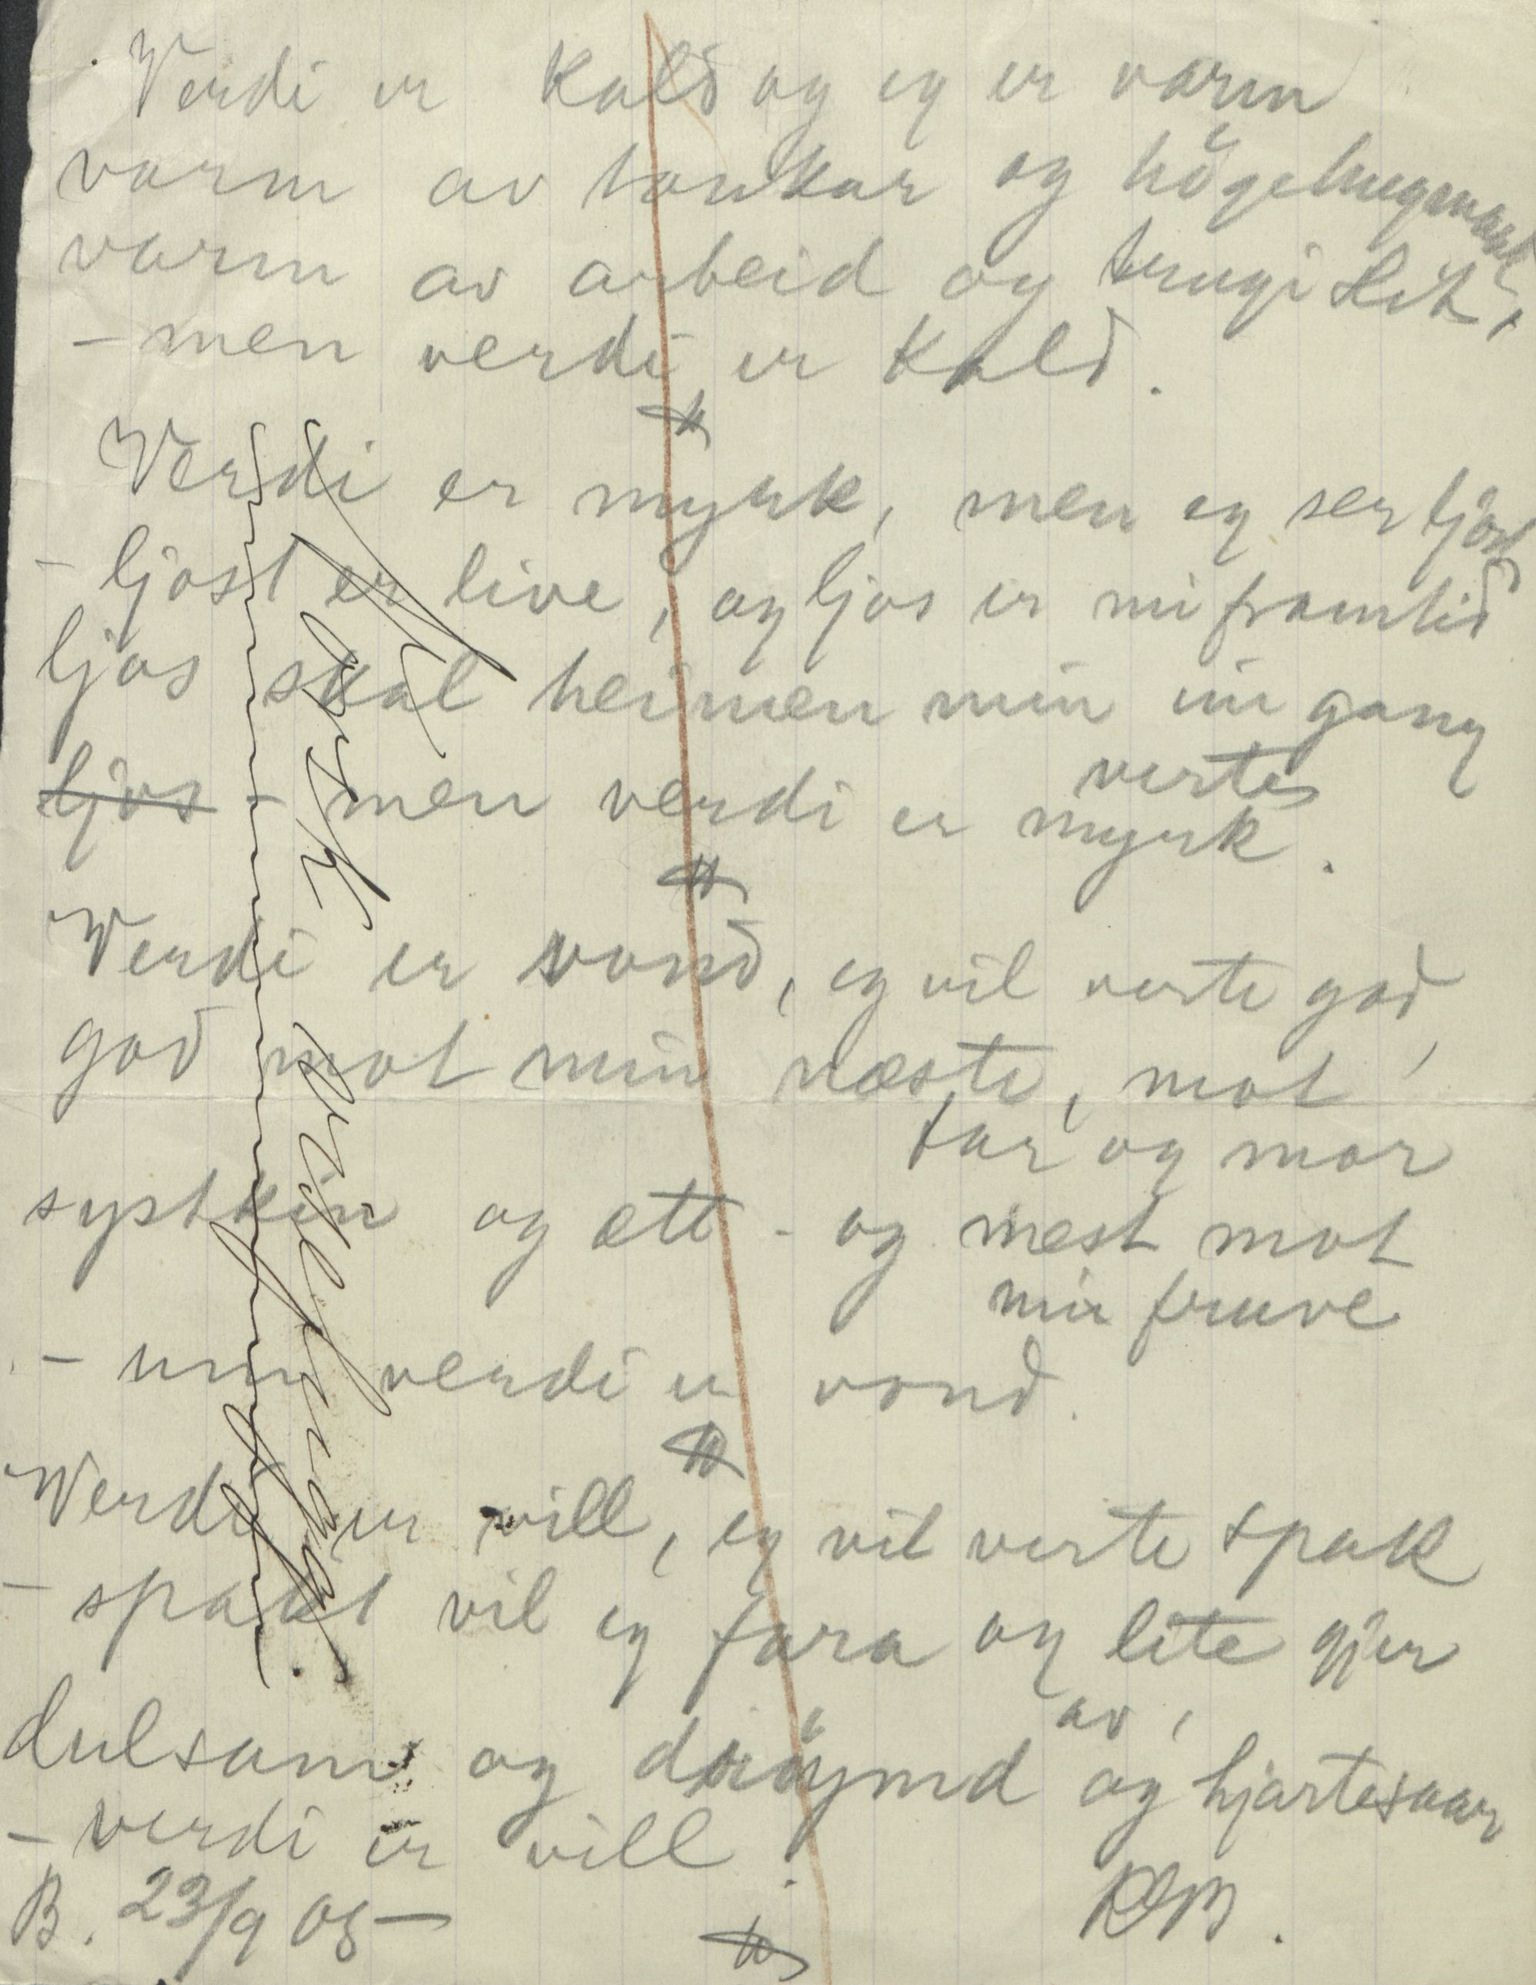 Verdi er kald og eg er varm
varm av tankar og höge
varm av arbeid og trugi slit,
- men verdi er kald.
Verdi er myrk, men eg ser ljost
- ljost er live, og ljos er mi framtid
ljos skal heimen min ein gang
vertes
ljos - men verdi er myrk.
Verdi er vond, eg vil verte god,
god mot min næste, mot
far og mor
systkin og ætt - og mest mot
min fruve
- um verdi er vond.
Verdi er vill, eg vil verte spak
- spakt vil eg fara og lite gjer
av,
dulsam og dröymd og hjartesaar
- verdi er vill.
B. 23/9 05 -